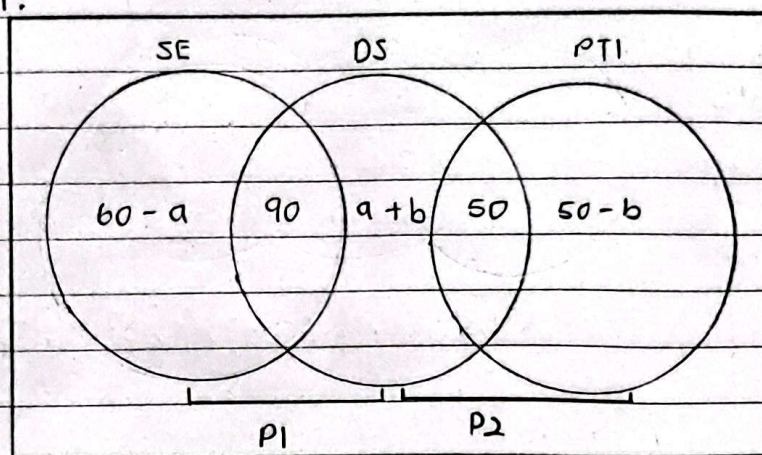 1.
SE DS PTI
60 - a 90 a + b 50 50 - b
P1 P2